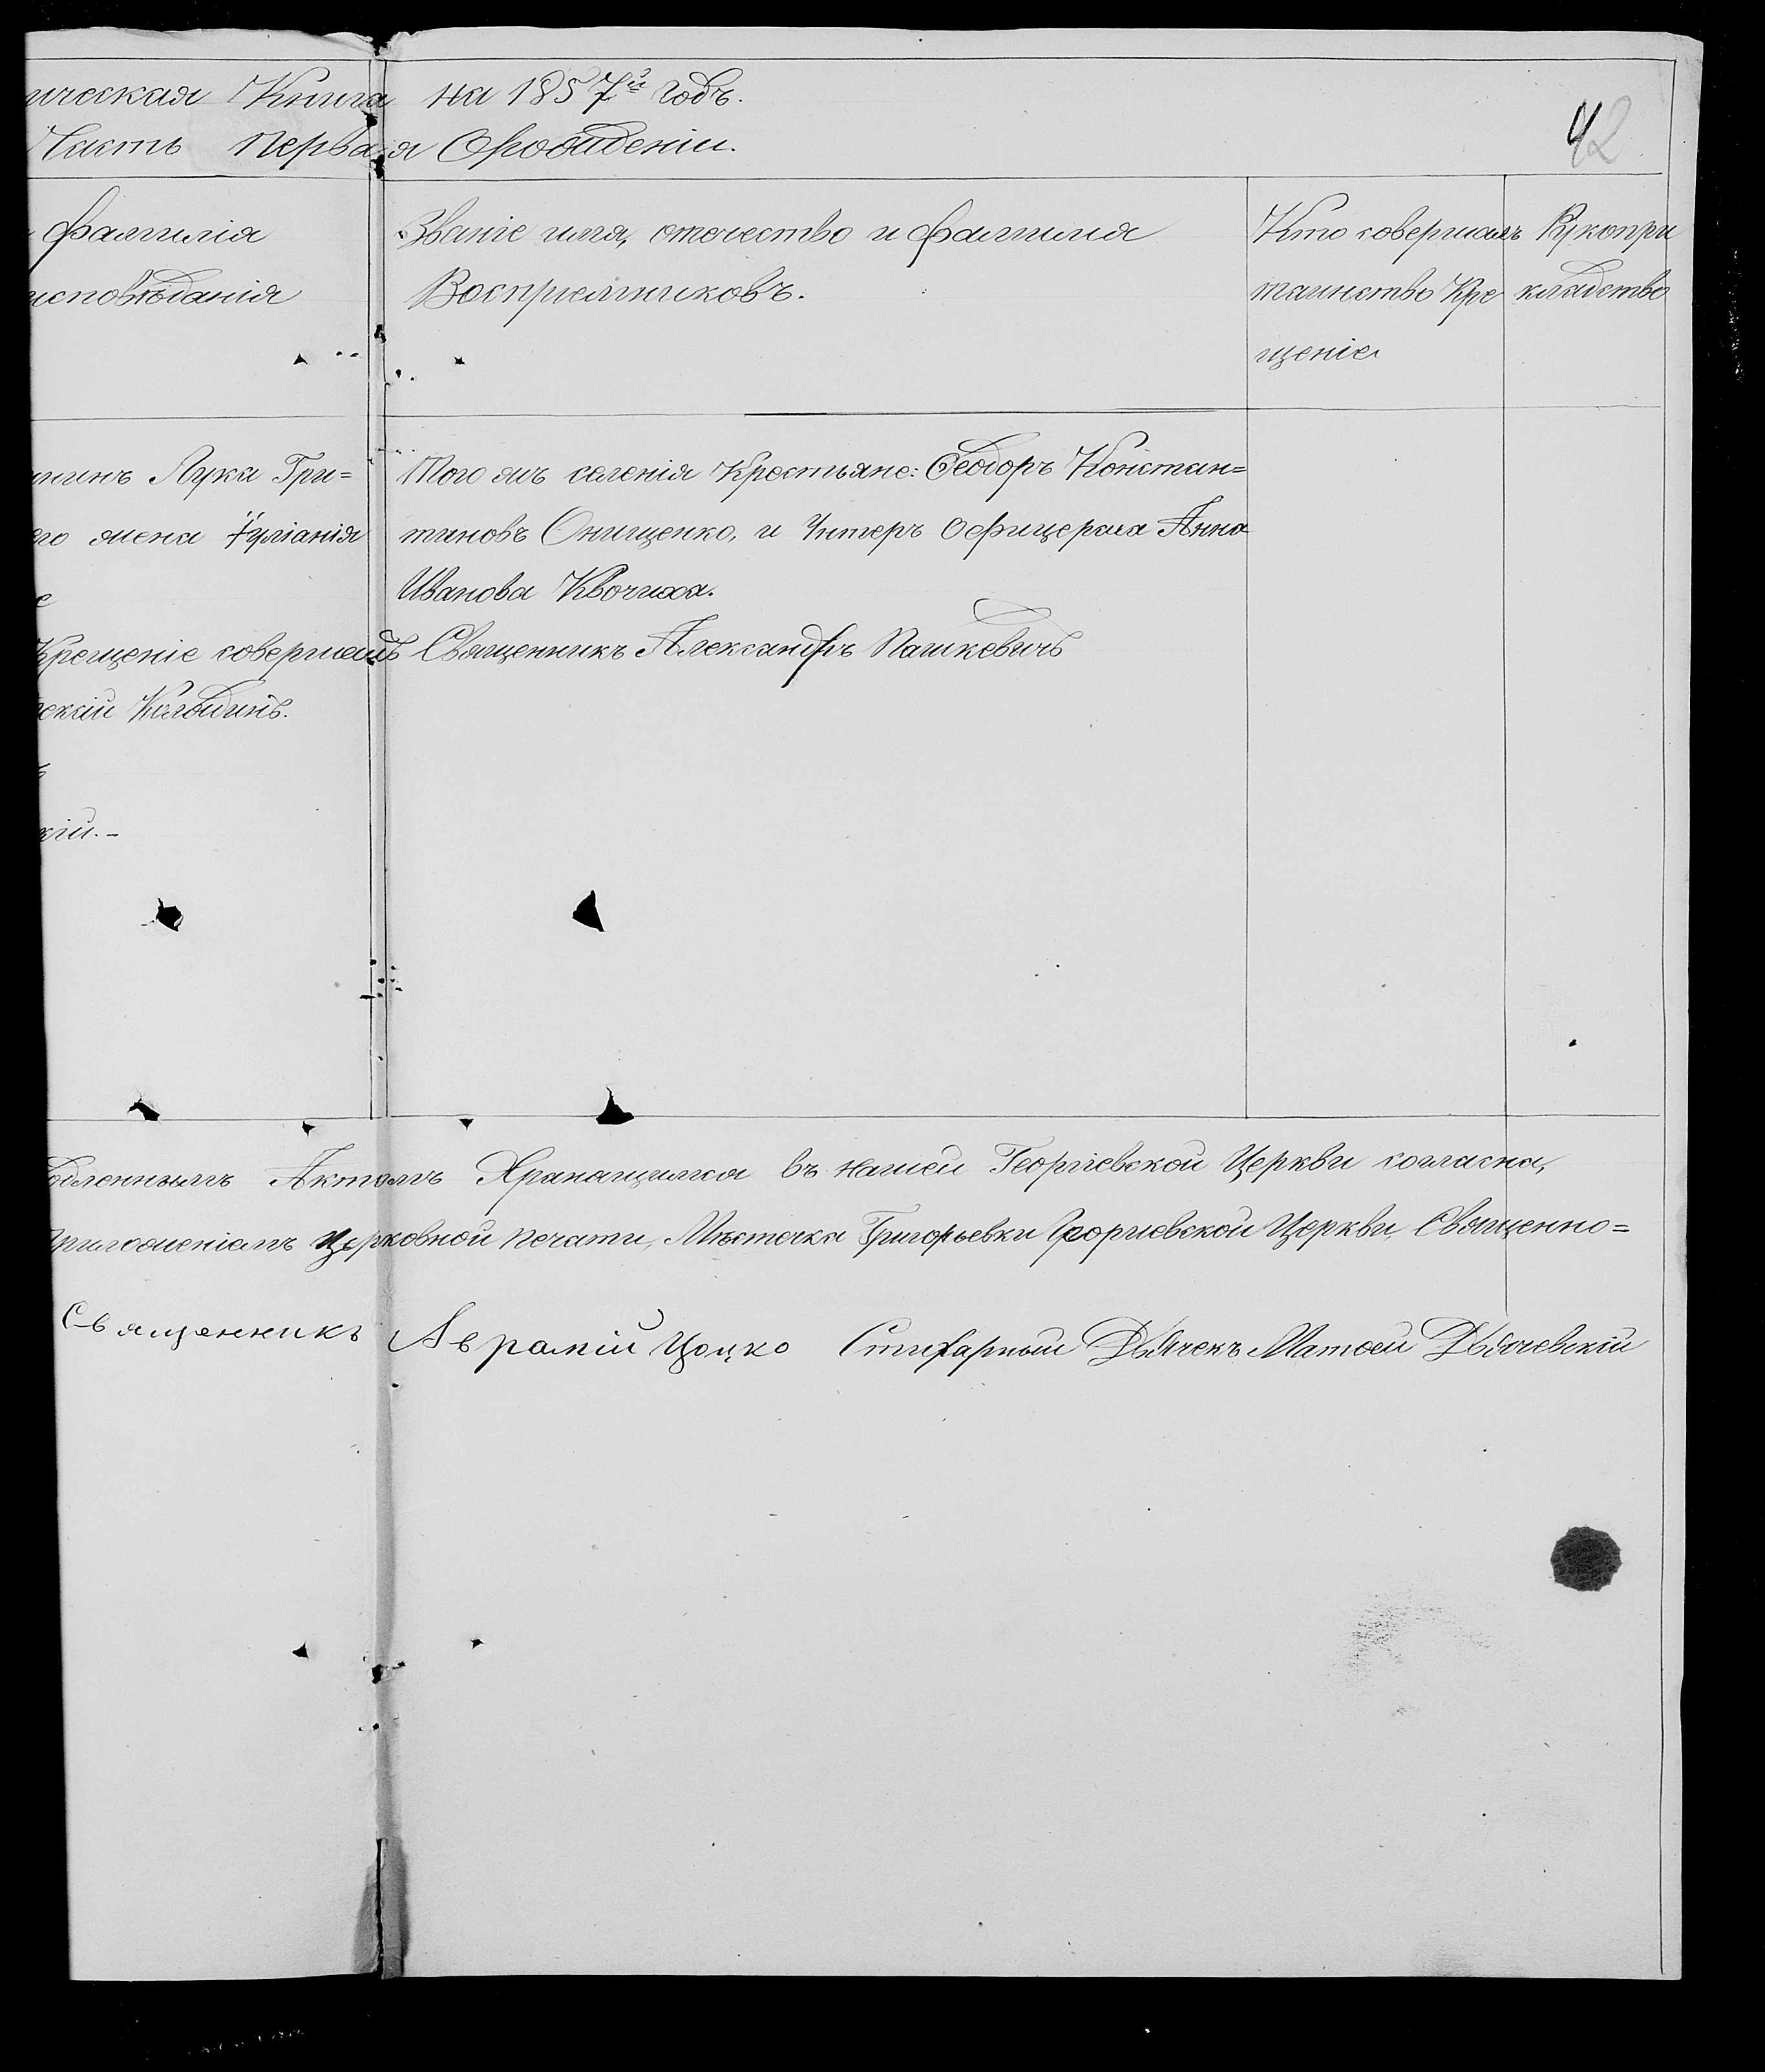 ическая Книга на 1857й Годъ.
Часть Первая О рождении.
42
фамилія
исповѣданія
Званіе имя, отечество и фамилия
Воспріемниковъ.
Кто совершалъ
таинство Кре
щеніе
Рукопри
кладство
нинъ Лука Гри=
его жена Іуліанія
Того жъ селенія Крестьяне: Ѳеодоръ Констан=
тиновъ Онищенко, и Унтеръ Офицерша Анна
Иванова Квочиха.
Крещеніе совершалъ Священникъ Александръ Пашкевичъ
кій.-
Актомъ Хранащимса въ нашей Георгіевской Церкви согласна,
приложеніемъ Церковной печати, Мѣстечка Григорьевки Георгиевской Церкви, Священно=
Священникъ Аврамій Цоцко Стихарный Дьячекъ Матѳей Дьячевскій